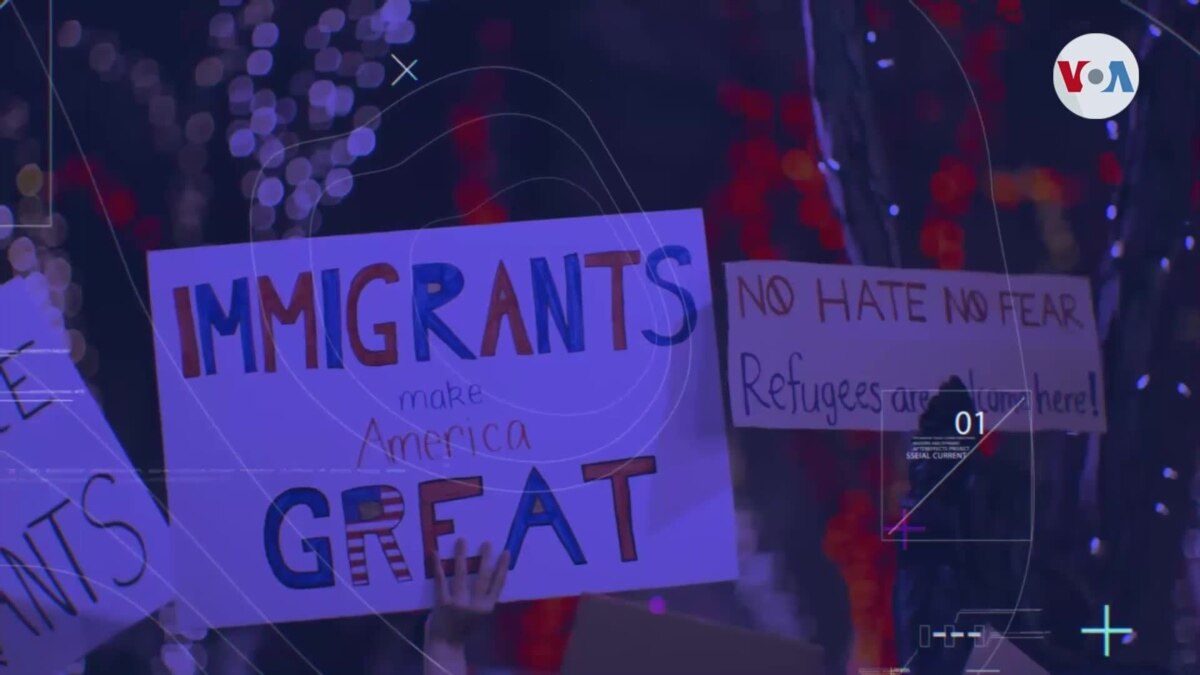 VOA
IMMIGRANTS
make
America
GREAT
NO HATE NO FEAR
Refugees are here!
ANTS
01
SSEIAL CURRENT